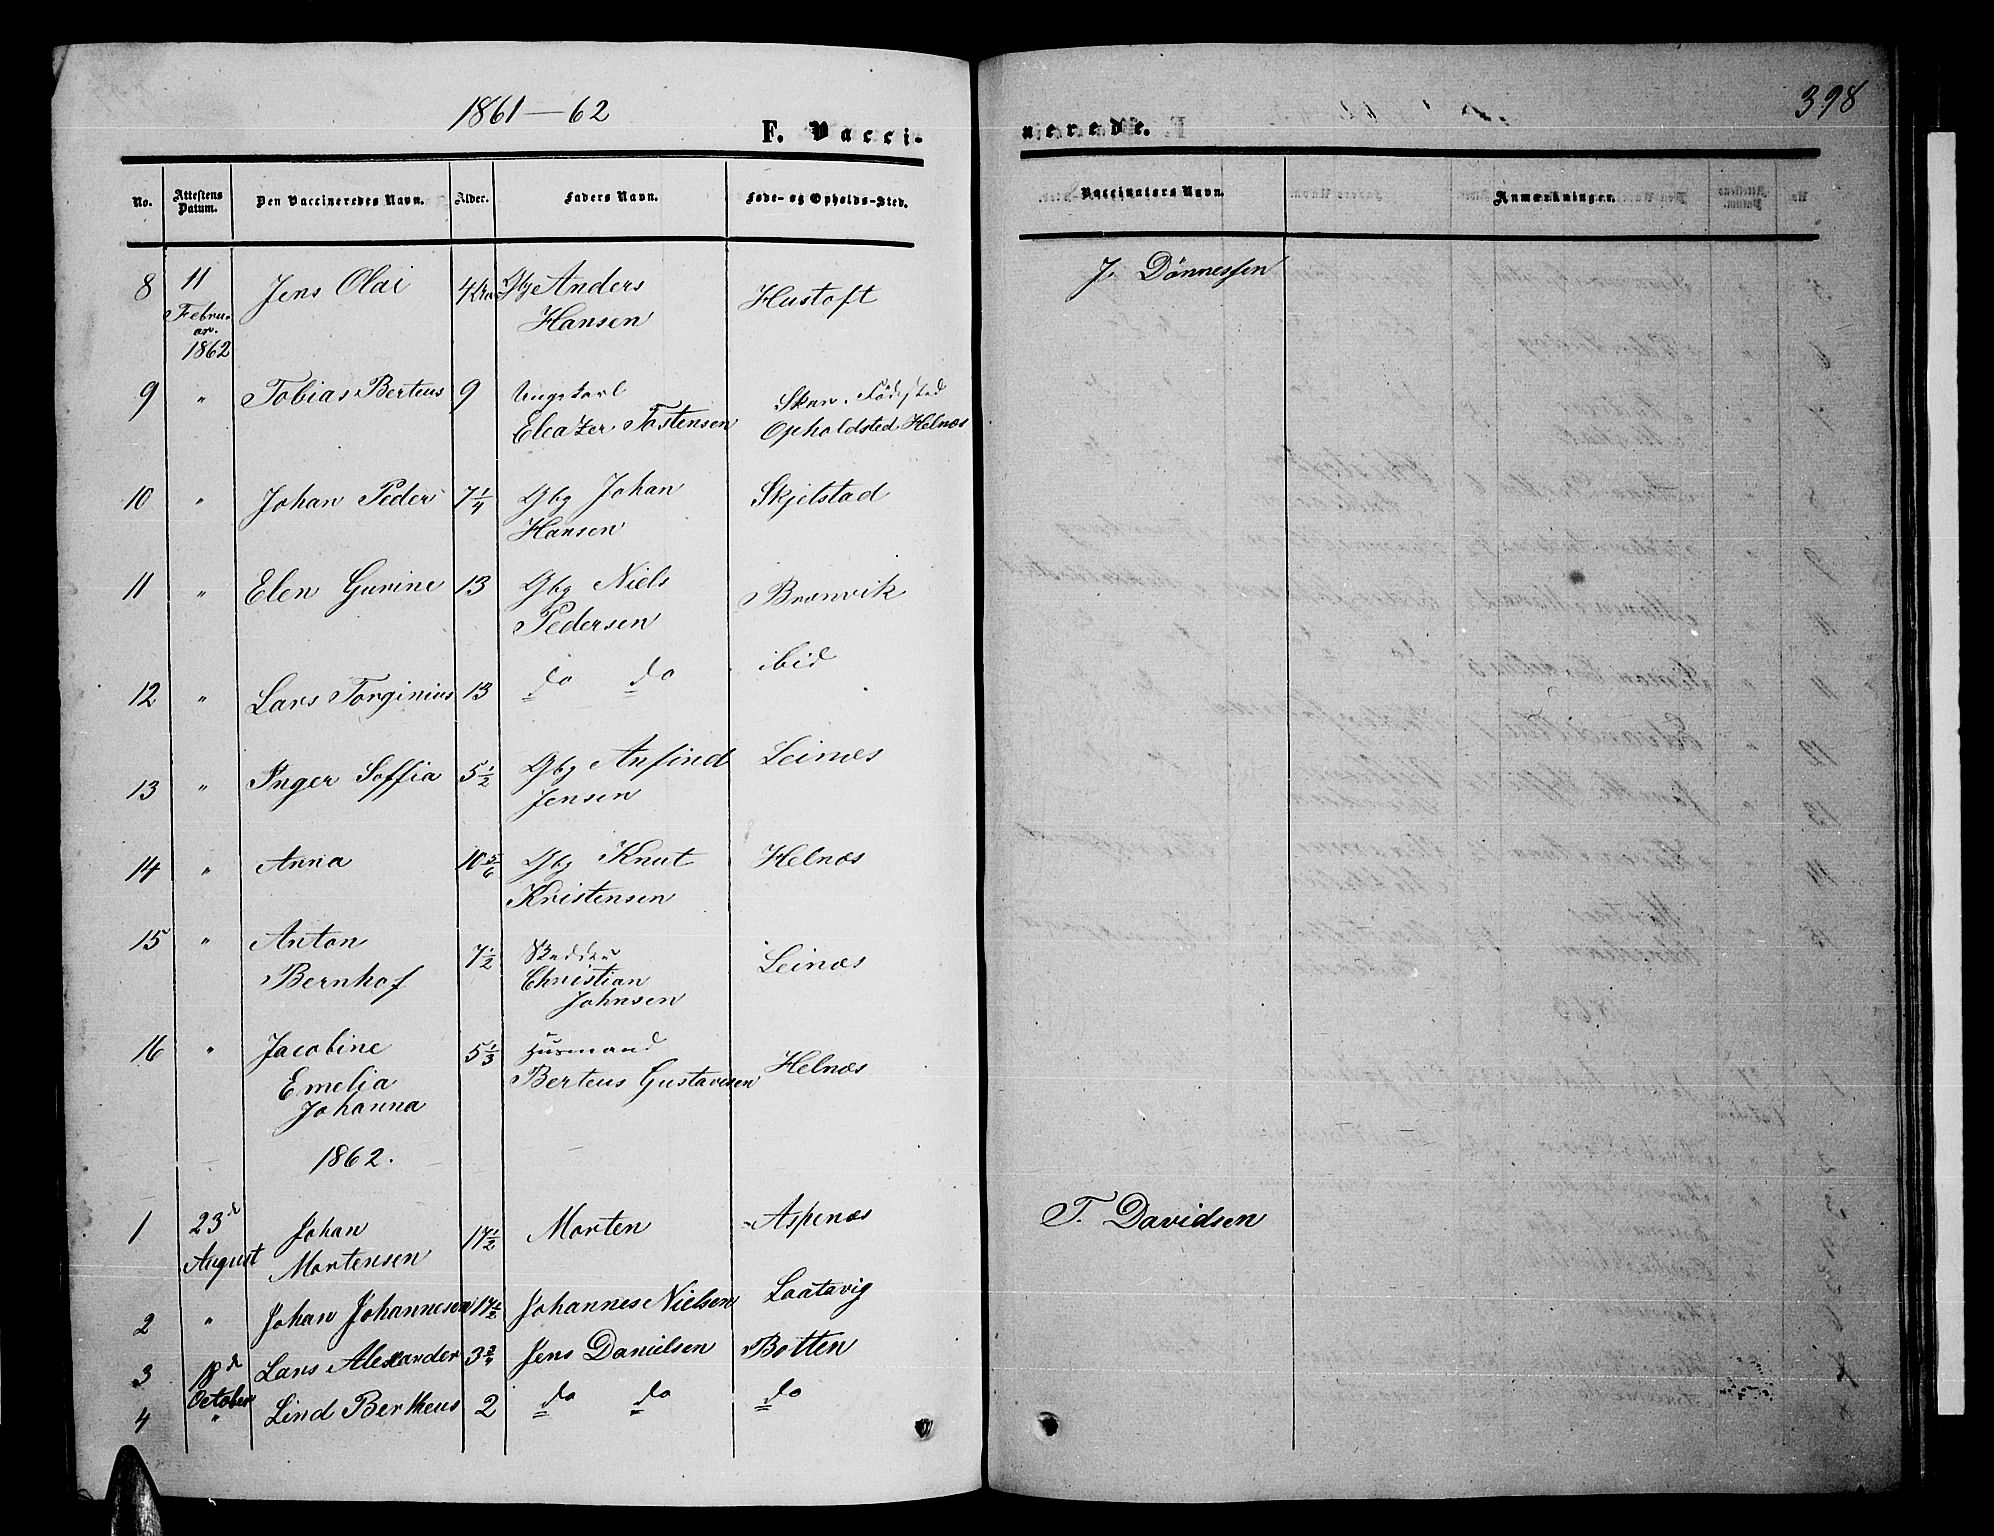 1861-62
398
F. Vacci-
nerede.
No. Attestens Datum. Den Vaccineredes Navn. Alder. Faders Navn. Føde- og Opholds-Sted. Vaccinators Navn. Anmærkninger.
8 11 Februar. 1862 Jens Olai 4 Gbg Anders Hansen Hustoft J. Dönnessen
9 " Tobias Berteus 9 Ungkarl Eleazer Tostensen Skar. Födested Opholdsted Helnæs
10 " Johan Peder 7 1/4 Gbg Johan Hansen Skjelstad
11 " Elen Gurine 13 Gbg Niels Pedersen Brænvik
12 " Lars Torginius 13 do do ibid
13 " Inger Soffia 5 1/2 Gbg Anfind Jensen Leinæs
14 " Anna 10 5/6 Gbg Knut Kristensen Helnæs
15 " Anton Bernhof 7 1/2 Christian Johnsen Leinæs
16 " Jacobine Emelia Johanna 5 1/3 Husmand Berteus Gustavesen Helnæs
1862.
1 23d August Johan Mortensen 17 1/2 Morten Aspenæs T. Davidsen
2 " Johan Johannesen 17 1/2 Johannes Nielsen Laatavig
3 18d October Lars Alexander 3 3/4 Jens Danielsen Botten
4 " Lind Bertheus 2 do do do